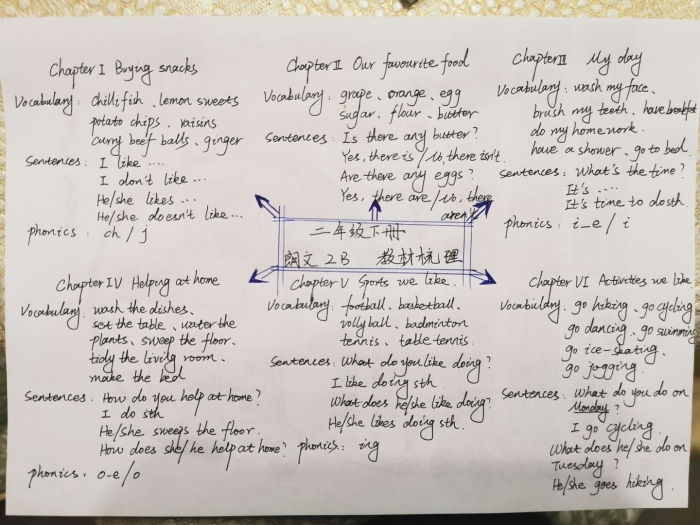 Chapter I Buying snacks
Vocabulary: chillifish、lemon sweets
potato chips、raisins
curry beef balls、ginger
Sentences: I like ....
I don't like ...
He/she likes ...
He/she doesn't like ...
phonics: ch / j
Chapter II Our favourite food
Vocabulary: grape、orange、egg
sugar、flour、butter
Sentences: Is there any butter?
Yes, there is / No, there isn't.
Are there any eggs?
Yes, there are / No, there
aren't
Chapter III My day
Vocabulary: wash my face、
brush my teeth、have breakfast
do my homework、
have a shower、go to bed
Sentences: What's the time?
It's ....
It's time to do sth.
phonics: i_e / i
二年级下册
朗文 2B 教材梳理
Chapter IV Helping at home
Vocabulary: wash the dishes、
set the table、water the
plants、sweep the floor、
tidy the living room、
make the bed
Sentences: How do you help at home?
I do sth
He/She sweeps the floor.
How does she/he help at home?
phonics: o-e / o
Chapter V Sports we like
Vocabulary: football、basketball、
vollyball、badminton
tennis、table-tennis
Sentences: What do you like doing?
I like doing sth.
What does he/she like doing?
He/She likes doing sth.
phonics: ing
Chapter VI Activities we like
Vocabulary: go hiking、go cycling
go dancing、go swimming
go ice-skating、
go jogging
Sentences: What do you do on
Monday?
I go cycling.
What does he/she do on
Tuesday?
He/She goes hiking.